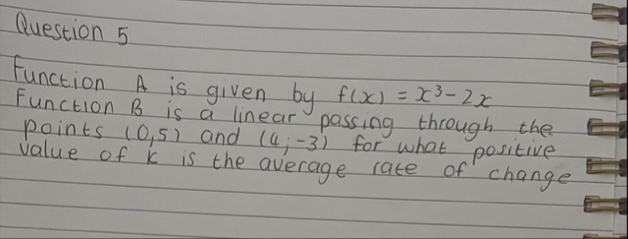 Question 5
Function A is given by f(x) = x³ - 2x
Function B is a linear passing through the
points (0,5) and (4,-3) for what positive
value of k is the average rate of change